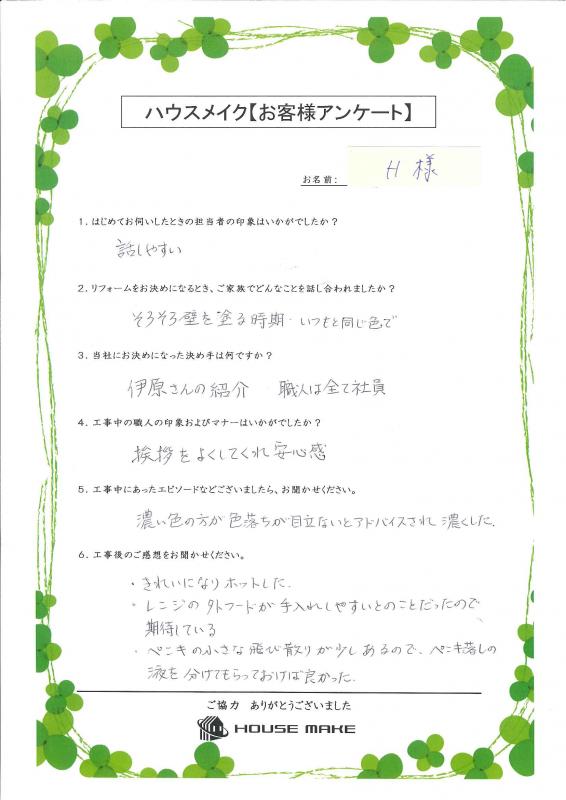 ハウスメイク【お客様アンケート】
お名前： H 様
1．はじめてお伺いしたときの担当者の印象はいかがでしたか？
話しやすい
2．リフォームをお決めになるとき、ご家族でどんなことを話し合われましたか？
そろそろ壁を塗る時期・いつもと同じ色で
3．当社にお決めになった決め手は何ですか？
伊原さんの紹介　職人は全て社員
4．工事中の職人の印象およびマナーはいかがでしたか？
挨拶をよくしてくれ安心感
5．工事中にあったエピソードなどございましたら、お聞かせください。
濃い色の方が色落ちが目立ないとアドバイスされ濃くした.
6．工事後のご感想をお聞かせください。
・きれいになりホットした.
・レンジの外フードが手入れしやすいとのことだったので
期待している
・ペンキの小さな飛び散りが少しあるので、ペンキ落しの
液を分けてもらっておけば良かった.
ご協力　ありがとうございました
HOUSE MAKE